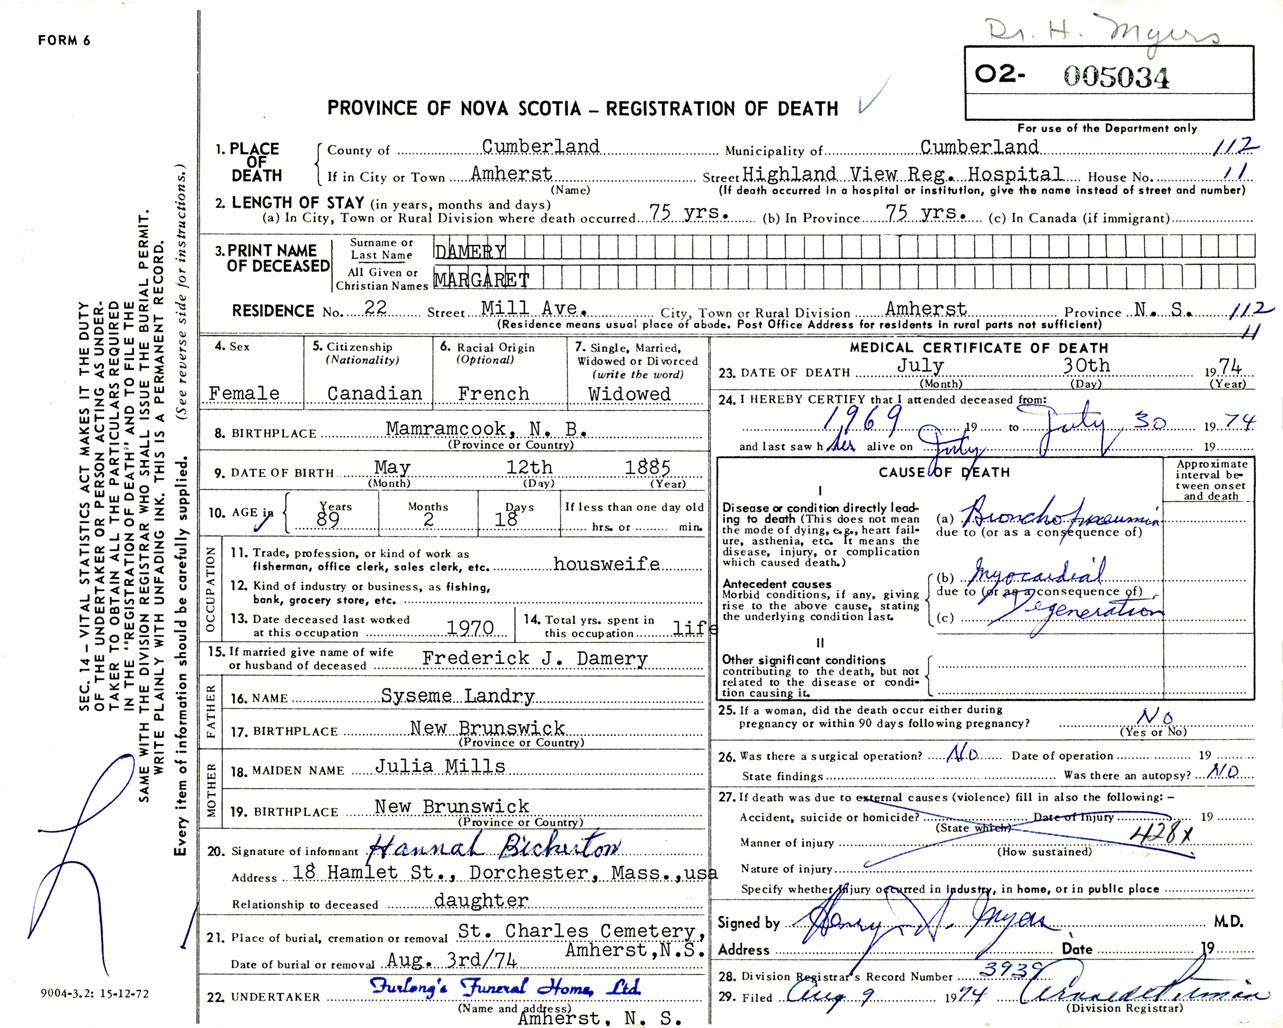 Dr. H. Myers
FORM 6
O2- 005034
For use of the Department only
PROVINCE OF NOVA SCOTIA – REGISTRATION OF DEATH
SEC. 14 – VITAL STATISTICS ACT MAKES IT THE DUTY
OF THE UNDERTAKER OR PERSON ACTING AS UNDER-
TAKER TO OBTAIN ALL THE PARTICULARS REQUIRED
IN THE "REGISTRATION OF DEATH" AND TO FILE THE
SAME WITH THE DIVISION REGISTRAR WHO SHALL ISSUE THE BURIAL PERMIT.
WRITE PLAINLY WITH UNFADING INK. THIS IS A PERMANENT RECORD.
Every item of information should be carefully supplied. (See reverse side for instructions.)
1. PLACE OF DEATH
County of Cumberland Municipality of Cumberland 112
If in City or Town Amherst Street Highland View Reg. Hospital House No. 11
(Name) (If death occurred in a hospital or institution, give the name instead of street and number)
2. LENGTH OF STAY (in years, months and days)
(a) In City, Town or Rural Division where death occurred 75 yrs. (b) In Province 75 yrs. (c) In Canada (if immigrant)
3. PRINT NAME OF DECEASED
Surname or Last Name DAMERY
All Given or Christian Names MARGARET
RESIDENCE No. 22 Street Mill Ave. City, Town or Rural Division Amherst Province N. S. 112
(Residence means usual place of abode. Post Office Address for residents in rural parts not sufficient) 11
4. Sex
Female
5. Citizenship
(Nationality)
Canadian
6. Racial Origin
(Optional)
French
7. Single, Married,
Widowed or Divorced
(write the word)
Widowed
8. BIRTHPLACE Mamramcook, N. B.
(Province or Country)
9. DATE OF BIRTH May 12th 1885
(Month) (Day) (Year)
10. AGE in Years 89 Months 2 Days 18 If less than one day old
hrs. or min.
OCCUPATION
11. Trade, profession, or kind of work as
fisherman, office clerk, sales clerk, etc. housweife
12. Kind of industry or business, as fishing,
bank, grocery store, etc.
13. Date deceased last worked
at this occupation 1970
14. Total yrs. spent in
this occupation life
15. If married give name of wife
or husband of deceased Frederick J. Damery
FATHER
16. NAME Syseme Landry
17. BIRTHPLACE New Brunswick
(Province or Country)
MOTHER
18. MAIDEN NAME Julia Mills
19. BIRTHPLACE New Brunswick
(Province or Country)
20. Signature of informant Hannah Bickerton
Address 18 Hamlet St., Dorchester, Mass.,usa
Relationship to deceased daughter
21. Place of burial, cremation or removal St. Charles Cemetery,
Amherst,N.S.
Date of burial or removal Aug. 3rd/74
22. UNDERTAKER Furlong's Funeral Home, Ltd.
(Name and address)
Amherst, N. S.
9004-3.2: 15-12-72
MEDICAL CERTIFICATE OF DEATH
23. DATE OF DEATH July 30th 1974
(Month) (Day) (Year)
24. I HEREBY CERTIFY that I attended deceased from:
1969 19 to July 30 1974
and last saw h er alive on July 19
CAUSE OF DEATH
Approximate
interval be-
tween onset
and death
I
Disease or condition directly lead-
ing to death (This does not mean
the mode of dying, e.g., heart fail-
ure, asthenia, etc. It means the
disease, injury, or complication
which caused death.)
(a) Bronchopneumonia
due to (or as a consequence of)
Antecedent causes
Morbid conditions, if any, giving
rise to the above cause, stating
the underlying condition last.
(b) Myocardial
due to (or as a consequence of)
(c) Degeneration
II
Other significant conditions
contributing to the death, but not
related to the disease or condi-
tion causing it.
25. If a woman, did the death occur either during
pregnancy or within 90 days following pregnancy? No
(Yes or No)
26. Was there a surgical operation? No Date of operation 19
State findings Was there an autopsy? No
27. If death was due to external causes (violence) fill in also the following: –
Accident, suicide or homicide? Date of Injury 19
(State which) 428x
Manner of injury
(How sustained)
Nature of injury
Specify whether injury occurred in Industry, in home, or in public place
Signed by Henry Myers M.D.
Address Date 19
28. Division Registrar's Record Number 3939
29. Filed Aug 9 1974
(Division Registrar)